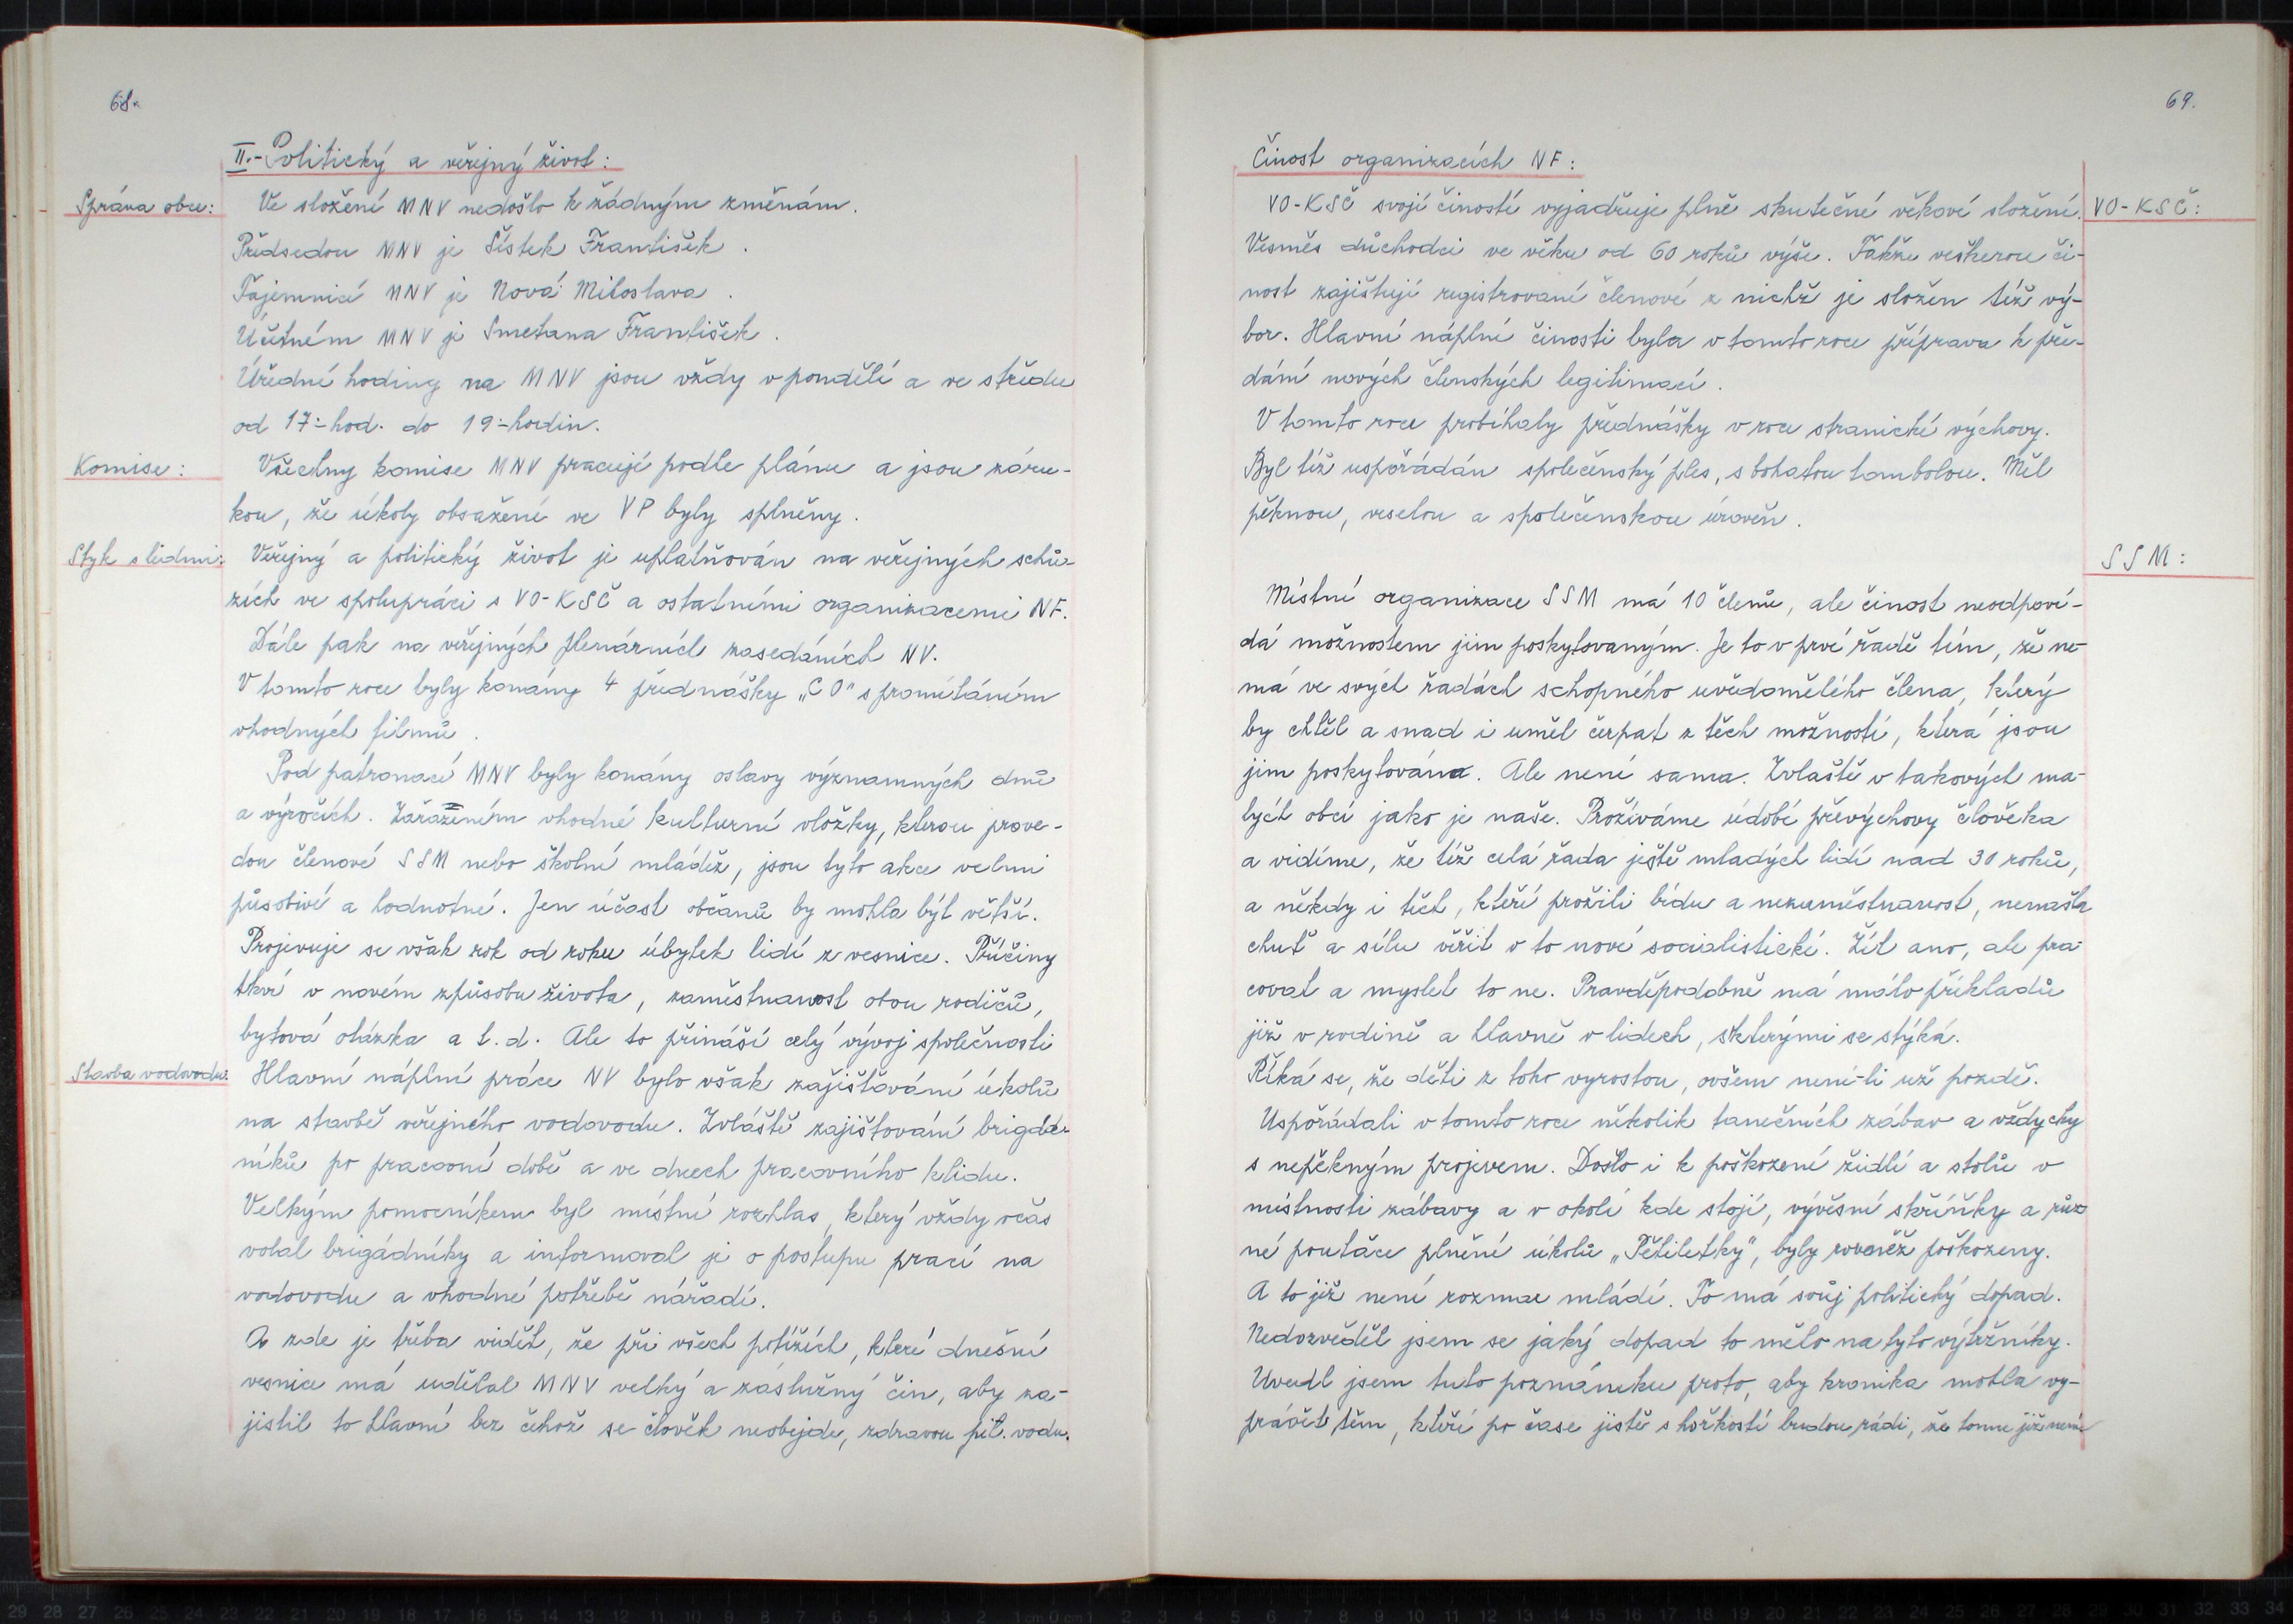 68.
II.-Politický a veřejný život:
Správa obce:
Ve složení MNV nedošlo k žádným změnám.
Předsedou MNV je Šístek František.
Tajemnicí MNV je Nová Miloslava.
Účetním MNV je Smetana František.
Úřední hodiny na MNV jsou vždy v pondělí a ve středu
od 17-hod. do 19-hodin.
Komise:
Všechny komise MNV pracují podle plánu a jsou záru-
kou, že úkoly obsažené ve VP byly splněny.
Styk s lidmi:
Veřejný a politický život je uplatňován na veřejných schů-
zích ve spolupráci s VO-KSČ a ostatními organizacemi NF.
Dále pak na veřejných plenárních zasedáních NV.
V tomto roce byly konány 4 přednášky „CO" s promítáním
vhodných filmů.
Pod patronací MNV byly konány oslavy významných dnů
a výročích. Zařazením vhodné kulturní vložky, kterou prove-
dou členové SSM nebo školní mládež, jsou tyto akce velmi
působivé a hodnotné. Jen účast občanů by mohla být větší.
Projevuje se však rok od roku úbytek lidí z vesnice. Příčiny
tkví v novém způsobu života, zaměstnanost obou rodičů,
bytová otázka a t.d. Ale to přináší celý vývoj společnosti
Stavba vodovodu:
Hlavní náplní práce NV bylo však zajišťování úkolů
na stavbě veřejného vodovodu. Zvláště zajišťování brigád-
níků po pracovní době a ve dnech pracovního klidu.
Velkým pomocníkem byl místní rozhlas, který vždy včas
volal brigádníky a informoval je o postupu prací na
vodovodu a vhodné potřebě nářadí.
A zde je třeba vidět, že při všech potížích, které dnešní
vesnice má udělal MNV velký a záslužný čin, aby za-
jistil to hlavní bez čehož se člověk neobejde, zdravou pit. vodu.
69.
Činost organizacích NF:
VO-KSČ:
VO-KSČ svojí čiností vyjadřuje plně skutečné věkové složení.
Vesměs důchodci ve věku od 60 roků výše. Takže veškerou či-
nost zajištují registrovaní členové z nichž je složen též vý-
bor. Hlavní náplní činosti byla v tomto roce příprava k pře-
dání nových členských legitimací.
V tomto roce probíhaly přednášky v roce stranické výchovy.
Byl též uspořádán společenský ples, s bohatou tombolou. Měl
pěknou, veselou a společenskou úroveň.
SSM:
Místní organizace SSM má 10 členů, ale činost neodpoví-
dá možnostem jim poskytovaným. Je to v prvé řadě tím, že ne-
má ve svých řadách schopného uvědomělého člena, který
by chtěl a snad i uměl čerpat z těch možností, která jsou
jim poskytována. Ale není sama. Zvlaště v takových ma-
lých obcí jako je naše. Prožíváme údobí převýchovy člověka
a vidíme, že též celá řada ještě mladých lidí nad 30 roků,
a někdy i těch, kteří prožili bídu a nezaměstnanost, nenašla
chuť a sílu věřit v to nové socialistické. Žít ano, ale pra-
covat a myslet to ne. Pravděpodobně má málo příkladů
již v rodině a hlavně v lidech, s kterými se stýká.
Říká se, že děti z toho vyrostou, ovšem není-li už pozdě.
Uspořádali v tomto roce několik tanečních zábav a vždycky
s nepěkným projevem. Došlo i k poškození židlí a stolů v
místnosti zábavy a v okolí kde stojí, vývěsní skříňky a růz
né poutače plnění úkolů „Pětiletky", byly rovněž poškozeny.
A to již není rozmar mládí. To má svůj politický dopad.
Nedozvěděl jsem se jaký dopad to mělo na tyto výtržníky.
Uvedl jsem tuto poznámku proto, aby kronika mohla vy-
právět těm, kteří po čase jistě s hořkostí budou rádi, že tomu již není